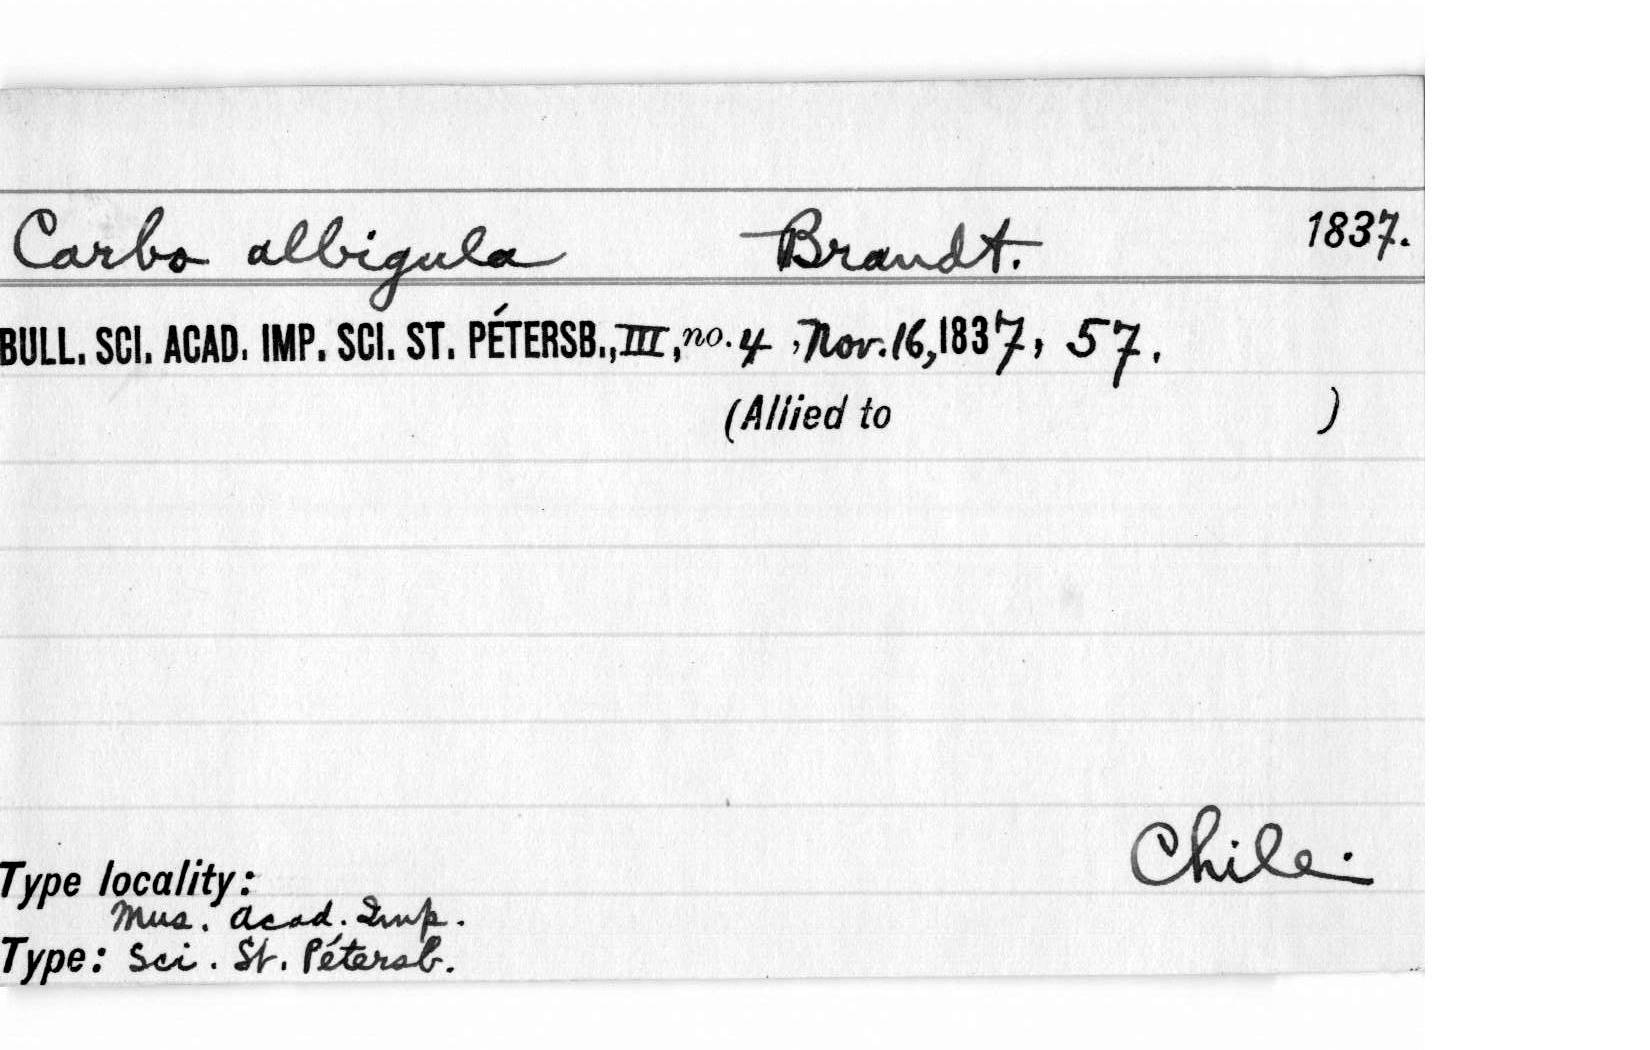 Carbo albigula Brandt. 1837.
BULL. SCI. ACAD. IMP. SCI. ST. PÉTERSB., III, no. 4, Nov. 16, 1837, 57.
(Allied to )
Chile.
Type locality:
Mus. Acad. Imp.
Type: Sci. St. Pétersb.